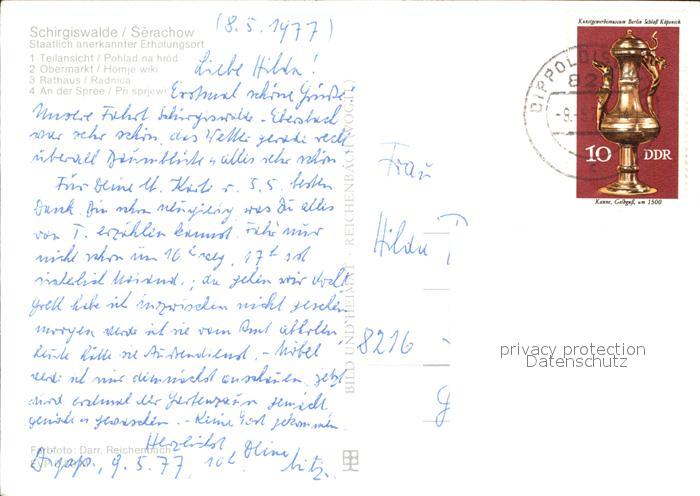 (8.5.1977)
Schirgiswalde / Šěrachow
Staatlich anerkannter Erholungsort
1 Teilansicht / Pohlad na hród
2 Obermarkt / Homje wiki
3 Rathaus / Radnica
4 An der Spree / Při sprjewi
Liebe Hilda!
Erstmal schöne Grüße!
Unsere Fahrt Schirgiswalde - Ebersbach
war sehr schön, das Wetter gerade recht
überall Baumblüte, alles sehr schön
Für Deine Karte v. 5.5. besten
Dank. Bin schon neugierig was Du alles
von T. erzählen kannst.
nicht schon um 16
; da gehen wir doch
habe ich inzwischen nicht gesehen
morgen werde ich sie vom Amt abholen
heute hatte sie Außendienst. - Möbel
werde ich mir demnächst anschauen, jetzt
wird erstmal der Gartenzaun gemacht,
gewaschen. - Keine Post gekommen.
Herzlichst Deine
9.5.77, 10h
Farbfoto: Darr, Reichenbach
BILD UND HEIMAT REICHENBACH (VOGTL)
Kunstgewerbemuseum Berlin Schloß Köpenick
10 DDR
Kanne, Gelbguß, um 1500
DIPPOLDIS
82
-9.-5
c
Frau
Hilda P
8216
G
privacy protection
Datenschutz